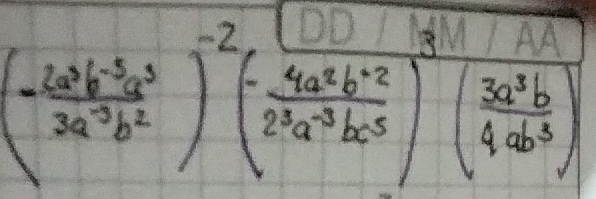 DD / MM / AA
(-\frac{2a^3b^{-5}a^3}{3a^{-3}b^2})^{-2} (-\frac{4a^2b^{-2}}{2^3a^{-3}bc^5})^3 (\frac{3a^3b}{4ab^3})